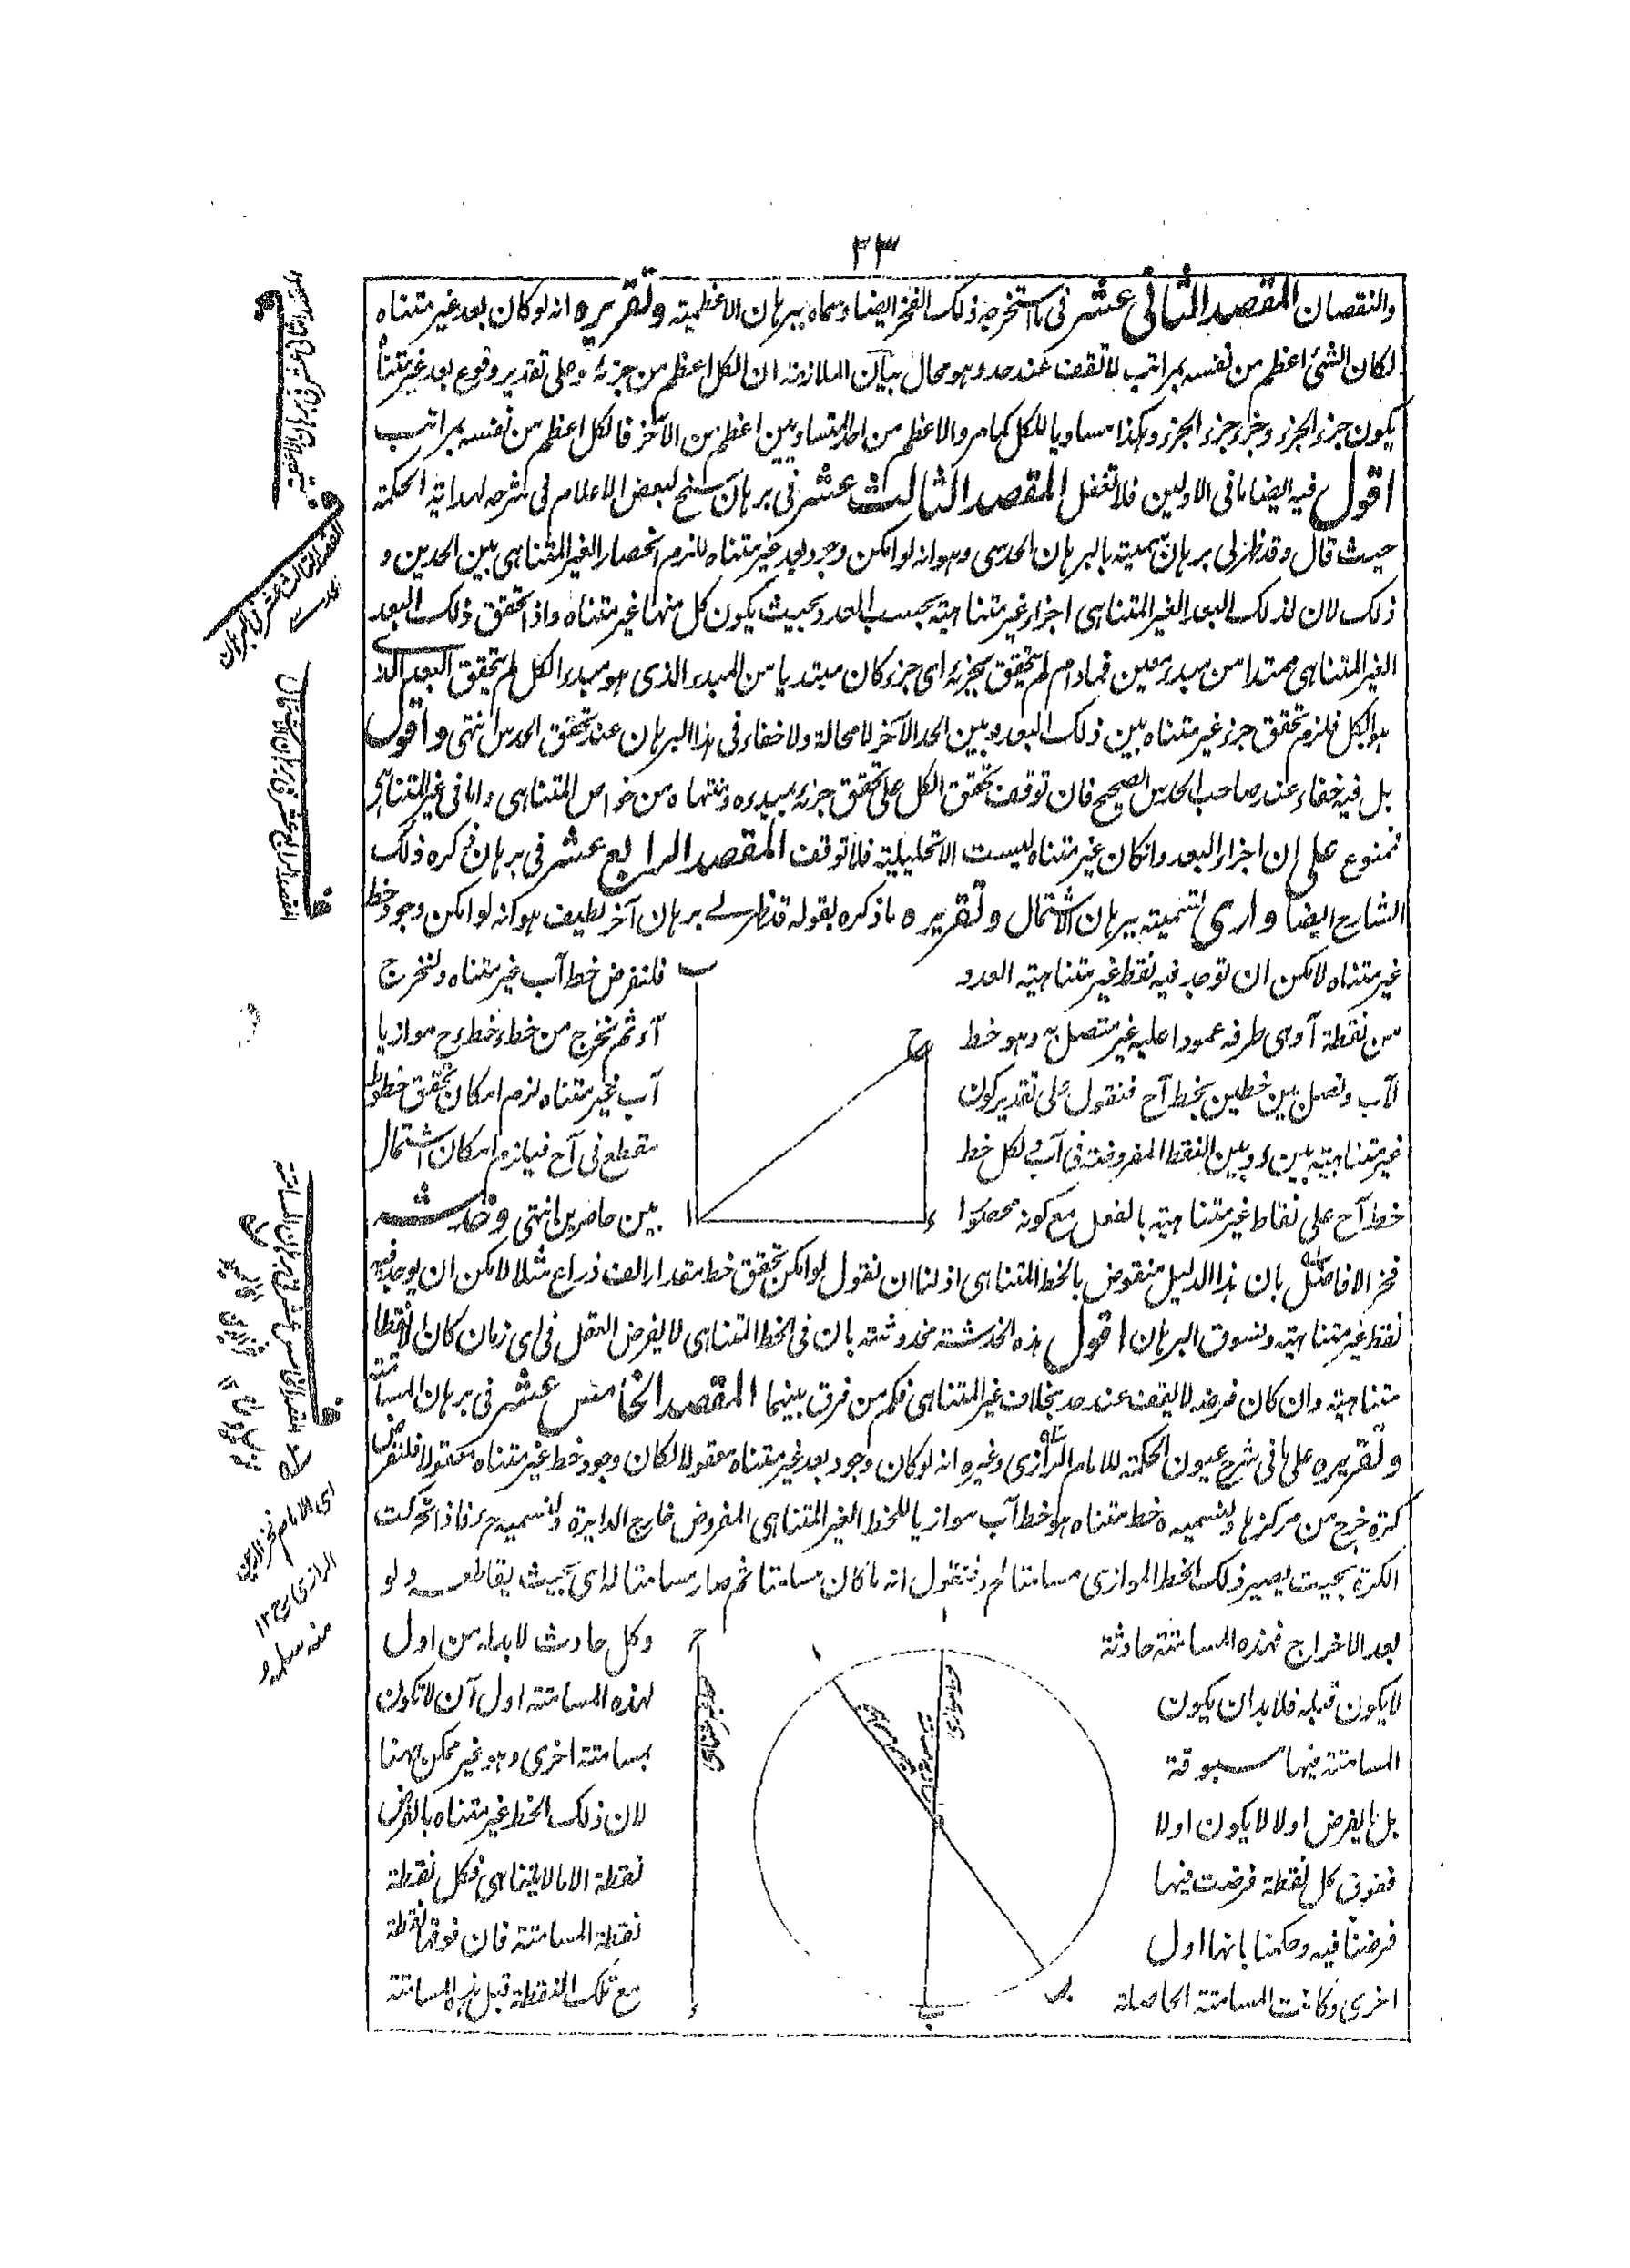 ٣٣
والنقصان المقصد الثانی عشر فی ما استخرجه ذلک الفخر ایضا وسماه ببرهان الاعظمیة وتقریره انه لو کان بعد غیر متناه
لکان الشئ اعظم من نفسه بمراتب لا تقف عند حد وهو محال بیان الملازمة ان الکل اعظم من جزئه وعلی تقدیر وقوع بعد غیر متناه
یکون جزء الجزء وجزء جزء الجزء وهکذا مساویا للکل کما مر والاعظم من احد المتساویین اعظم من الآخر فالکل اعظم من نفسه بمراتب
اقول فیه ایضا ما فی الاولین فلا تغفل المقصد الثالث عشر فی برهان سنح لبعض الاعلام فی شرحه لهدایة الحکمة
حیث قال وقد ظهر لی برهان سمیته بالبرهان الحدسی وهو انه لو امکن وجود بعد غیر متناه للزم انحصار الغیر المتناهی بین الحدین و
ذلک لان لذلک البعد الغیر المتناهی اجزاء غیر متناهیة بحسب العدد بحیث یکون کل منها غیر متناه واذا تحقق ذلک البعد
الغیر المتناهی ممتدا من مبدء معین فما دام لم یتحقق جزئه ای جزء کان مبتدیا من المبدء الذی هو مبدء الکل لم یتحقق البعد الذی
هو الکل فلزم تحقق جزء غیر متناه بین ذلک البعد وبین الحد الآخر لا محالة ولا خفاء فی هذا البرهان عند تحقق الحدس انتهی واقول
بل فیه خفاء عند صاحب الحدس الصحیح فان توقف تحقق الکل علی تحقق جزئه بمبدءه ومنتهاه من خواص المتناهی واما فی غیر المتناهی
فممنوع علی ان اجزاء البعد وان کان غیر متناه لیست الا تحلیلیة فلا توقف المقصد الرابع عشر فی برهان ذکره ذلک
الشارح ایضا واری تسمیته ببرهان الاشتمال وتقریره ما ذکره بقوله قد ظهر لی برهان آخر لطیف هو انه لو امکن وجود خط
غیر متناه لامکن ان توجد فیه نقط غیر متناهیة العدد فلنفرض خط آب غیر متناه ولنخرج
من نقطة آ وهی طرفه عمودا علیه غیر متصل به وهو خط آء ثم نخرج من خط ء خط ءح موازیا
لآب ونصل بین خطین بخط آح فنقول علی تقدیر کون آب غیر متناه لزم امکان تحقق خطوط
غیر متناهیة بین ء وبین النقط المفروضة فی آب ولکل خط مقطع فی آح فیلزم امکان اشتمال
خط آح علی نقاط غیر متناهیة بالفعل مع کونه محصورا بین حاصرین انتهی وخدشه
ب
ح
ا
ء
فخر الافاضل بان هذا الدلیل منقوض بالخط المتناهی اذ لنا ان نقول لو امکن تحقق خط مقدار الف ذراع مثلا لامکن ان یوجد فیه
نقط غیر متناهیة ونسوق البرهان اقول هذه الخدشة مخدوشة بان فی الخط المتناهی لا یفرض العقل فی ای زمان کان الا نقطا
متناهیة وان کان فرضه لا یقف عند حد بخلاف غیر المتناهی فکم من فرق بینهما المقصد الخامس عشر فی برهان المسامتة
وتقریره علی ما فی شرح عیون الحکمة للامام الرازی وغیره انه لو کان وجود بعد غیر متناه معقولا لکان وجود خط غیر متناه معقولا فلنفرض
کرة خرج من مرکزها ولنسمیه ه خط متناه هو خط آب موازیا للخط الغیر المتناهی المفروض خارج الدایرة ولنسمیه حء فاذا تحرکت
الکرة بحیث یصیر ذلک الخط الموازی مسامتا له فنقول انه ما کان مسامتا ثم صار مسامتا له ای بحیث یقاطعه ولو
بعد الاخراج فهذه المسامتة حادثة وکل حادث لا بد له من اول
لا یکون قبله فلا بد ان یکون لهذه المسامتة اول آن لا تکون
المسامتة فیها مسبوقة بمسامتة اخری وهو غیر ممکن ههنا
بل ما یفرض اولا لا یکون اولا لان ذلک الخط غیر متناه بالفرض
ففوق کل نقطة فرضت فیها نقطة الی ما لا یتناهی فکل نقطة
فرضنا فیه وحکمنا بانها اول نقطة المسامتة فان فوقها نقطة
اخری وکانت المسامتة الحاصلة مع تلک النقطة قبل هذه المسامتة
ح
ا
ء
ب
المقصد الثالث عشر فی البرهان
الحدسی
المقصد الرابع عشر فی برهان الاشتمال
المقصد الخامس عشر فی برهان المسامتة
ای الامام فخر الدین
الرازی رح ١٢
منه سلمه